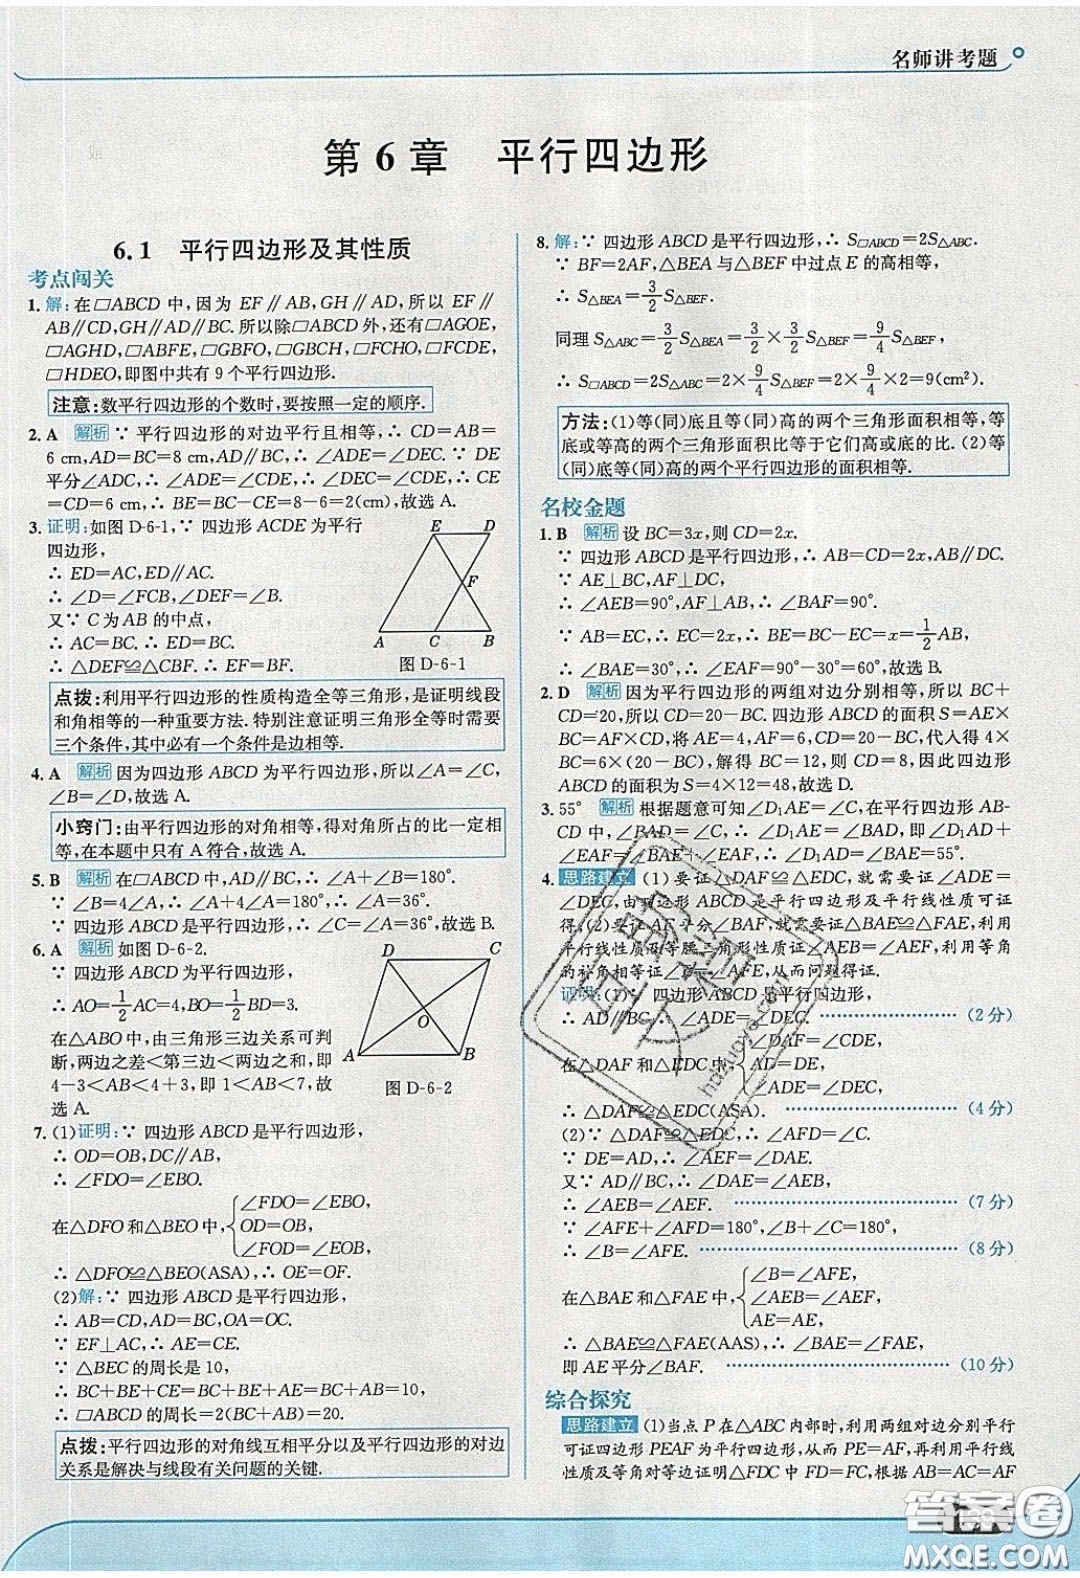 名师讲考题
第6章 平行四边形
6.1 平行四边形及其性质
考点闯关
1. 解:在▱ABCD 中,因为 EF∥AB,GH∥AD,所以 EF∥
AB∥CD,GH∥AD∥BC.所以除▱ABCD 外,还有▱AGOE,
▱AGHD,▱ABFE,▱GBFO,▱GBCH,▱FCHO,▱FCDE,
▱HDEO,即图中共有 9 个平行四边形.
注意:数平行四边形的个数时,要按照一定的顺序.
2. A 解析 ∵ 平行四边形的对边平行且相等,∴ CD=AB=
6 cm,AD=BC=8 cm,AD∥BC.∴ ∠ADE=∠DEC.∵ DE
平分∠ADC,∴ ∠ADE=∠CDE,∴ ∠DEC=∠CDE,∴ CE
=CD=6 cm,∴ BE=BC-CE=8-6=2(cm),故选 A.
3. 证明:如图 D-6-1,∵ 四边形 ACDE 为平行
四边形,
∴ ED=AC,ED∥AC.
∴ ∠D=∠FCB,∠DEF=∠B.
又∵ C 为 AB 的中点,
∴ AC=BC.∴ ED=BC.
∴ △DEF≌△CBF.∴ EF=BF.
E D
F
A C B
图 D-6-1
点拨:利用平行四边形的性质构造全等三角形,是证明线段
和角相等的一种重要方法.特别注意证明三角形全等时需要
三个条件,其中必有一个条件是边相等.
4. A 解析 因为四边形 ABCD 为平行四边形,所以∠A=∠C,
∠B=∠D,故选 A.
小窍门:由平行四边形的对角相等,得对角所占的比一定相
等,在本题中只有 A 符合,故选 A.
5. B 解析 在▱ABCD 中,AD∥BC,∴ ∠A+∠B=180°.
∵ ∠B=4∠A,∴ ∠A+4∠A=180°,∴ ∠A=36°.
∵ 四边形 ABCD 是平行四边形,∴ ∠C=∠A=36°,故选 B.
6. A 解析 如图 D-6-2.
∵ 四边形 ABCD 为平行四边形,
∴ AO=1/2 AC=4,BO=1/2 BD=3.
在△ABO 中,由三角形三边关系可判
断,两边之差<第三边<两边之和,即
4-3<AB<4+3,即 1<AB<7,故
选 A.
D C
O
A B
图 D-6-2
7. (1)证明:∵ 四边形 ABCD 是平行四边形,
∴ OD=OB,DC∥AB,
∴ ∠FDO=∠EBO.
在△DFO 和△BEO 中,{∠FDO=∠EBO,
OD=OB,
∠FOD=∠EOB,
∴ △DFO≌△BEO(ASA),∴ OE=OF.
(2)解:∵ 四边形 ABCD 是平行四边形,
∴ AB=CD,AD=BC,OA=OC.
∵ EF⊥AC,∴ AE=CE.
∵ △BEC 的周长是 10,
∴ BC+BE+CE=BC+BE+AE=BC+AB=10,
∴ ▱ABCD 的周长=2(BC+AB)=20.
点拨:平行四边形的对角线互相平分以及平行四边形的对边
关系是解决与线段有关问题的关键.
8. 解:∵ 四边形 ABCD 是平行四边形,∴ S▱ABCD=2S△ABC.
∵ BF=2AF,△BEA 与△BEF 中过点 E 的高相等,
∴ S△BEA=3/2 S△BEF.
同理 S△ABC=3/2 S△BEA=3/2×3/2 S△BEF=9/4 S△BEF,
∴ S▱ABCD=2S△ABC=2×9/4 S△BEF=2×9/4×2=9(cm²).
方法:(1)等(同)底且等(同)高的两个三角形面积相等,等
底或等高的两个三角形面积比等于它们高或底的比.(2)等
(同)底等(同)高的两个平行四边形的面积相等.
名校金题
1. B 解析 设 BC=3x,则 CD=2x.
∵ 四边形 ABCD 是平行四边形,∴ AB=CD=2x,AB∥DC.
∵ AE⊥BC,AF⊥DC,
∴ ∠AEB=90°,AF⊥AB,∴ ∠BAF=90°.
∵ AB=EC,∴ EC=2x,∴ BE=BC-EC=x=1/2 AB,
∴ ∠BAE=30°,∴ ∠EAF=90°-30°=60°,故选 B.
2. D 解析 因为平行四边形的两组对边分别相等,所以 BC+
CD=20,所以 CD=20-BC.四边形 ABCD 的面积 S=AE×
BC=AF×CD,将 AE=4,AF=6,CD=20-BC,代入得 4×
BC=6×(20-BC),解得 BC=12,则 CD=8,因此四边形
ABCD 的面积为 S=4×12=48,故选 D.
3. 55° 解析 根据题意可知∠D₁AE=∠C,在平行四边形 AB-
CD 中,∠BAD=∠C,∴ ∠D₁AE=∠BAD,即∠D₁AD+
∠EAF=∠BAE+∠EAF,∴ ∠D₁AD=∠BAE=55°.
4. 思路建立 (1)要证△DAF≌△EDC,就需要证∠ADE=
∠DEC,由四边形 ABCD 是平行四边形及平行线性质可证
得;(2)要证 AE 平分∠BAF,就需要证△BAE≌△FAE,利用
平行线性质及等腰三角形性质证∠AEB=∠AEF,利用等角
的补角相等证∠B=∠AFE,从而问题得证.
证明:(1)∵ 四边形 ABCD 是平行四边形,
∴ AD∥BC,∴ ∠ADE=∠DEC. (2分)
在△DAF 和△EDC 中,{∠DAF=∠CDE,
AD=DE,
∠ADE=∠DEC,
∴ △DAF≌△EDC(ASA). (4分)
(2)∵ △DAF≌△EDC,∴ ∠AFD=∠C.
∵ DE=AD,∴ ∠AEF=∠DAE.
又∵ AD∥BC,∴ ∠DAE=∠AEB,
∴ ∠AEB=∠AEF. (7分)
∵ ∠AFE+∠AFD=180°,∠B+∠C=180°,
∴ ∠B=∠AFE. (8分)
在△BAE 和△FAE 中,{∠B=∠AFE,
∠AEB=∠AEF,
AE=AE,
∴ △BAE≌△FAE(AAS),∴ ∠BAE=∠FAE,
即 AE 平分∠BAF. (10分)
综合探究
思路建立 (1)当点 P 在△ABC 内部时,利用两组对边分别平行
可证四边形 PEAF 为平行四边形,从而 PE=AF,再利用平行线
性质及等角对等边证明△FDC 中 FD=FC,根据 AB=AC=AF
答案圈
MXQE.COM